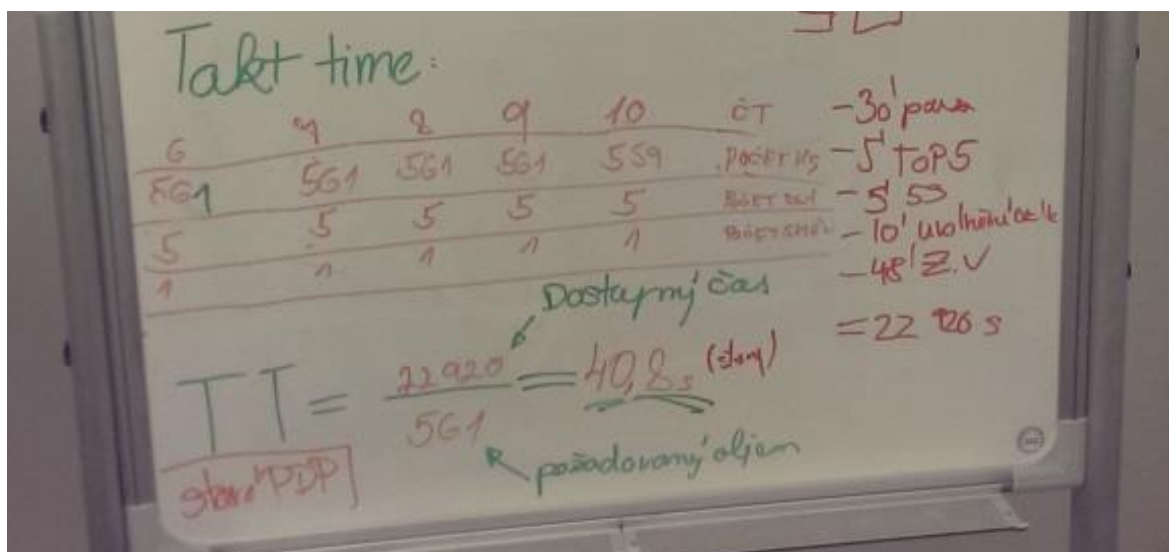 Takt time:
6 7 8 9 10 ČT
561 561 561 561 559 POČET KS
5 5 5 5 5 POČET DNÍ
1 1 1 1 1 POČET SMĚN
-30'
-5' TOP5
-5' 5S
-10' uvolnění
-48' Z.V
=22 920 s
Dostupný čas
TT = 22920 / 561 = 40,8 s
požadovaný objem
PDP